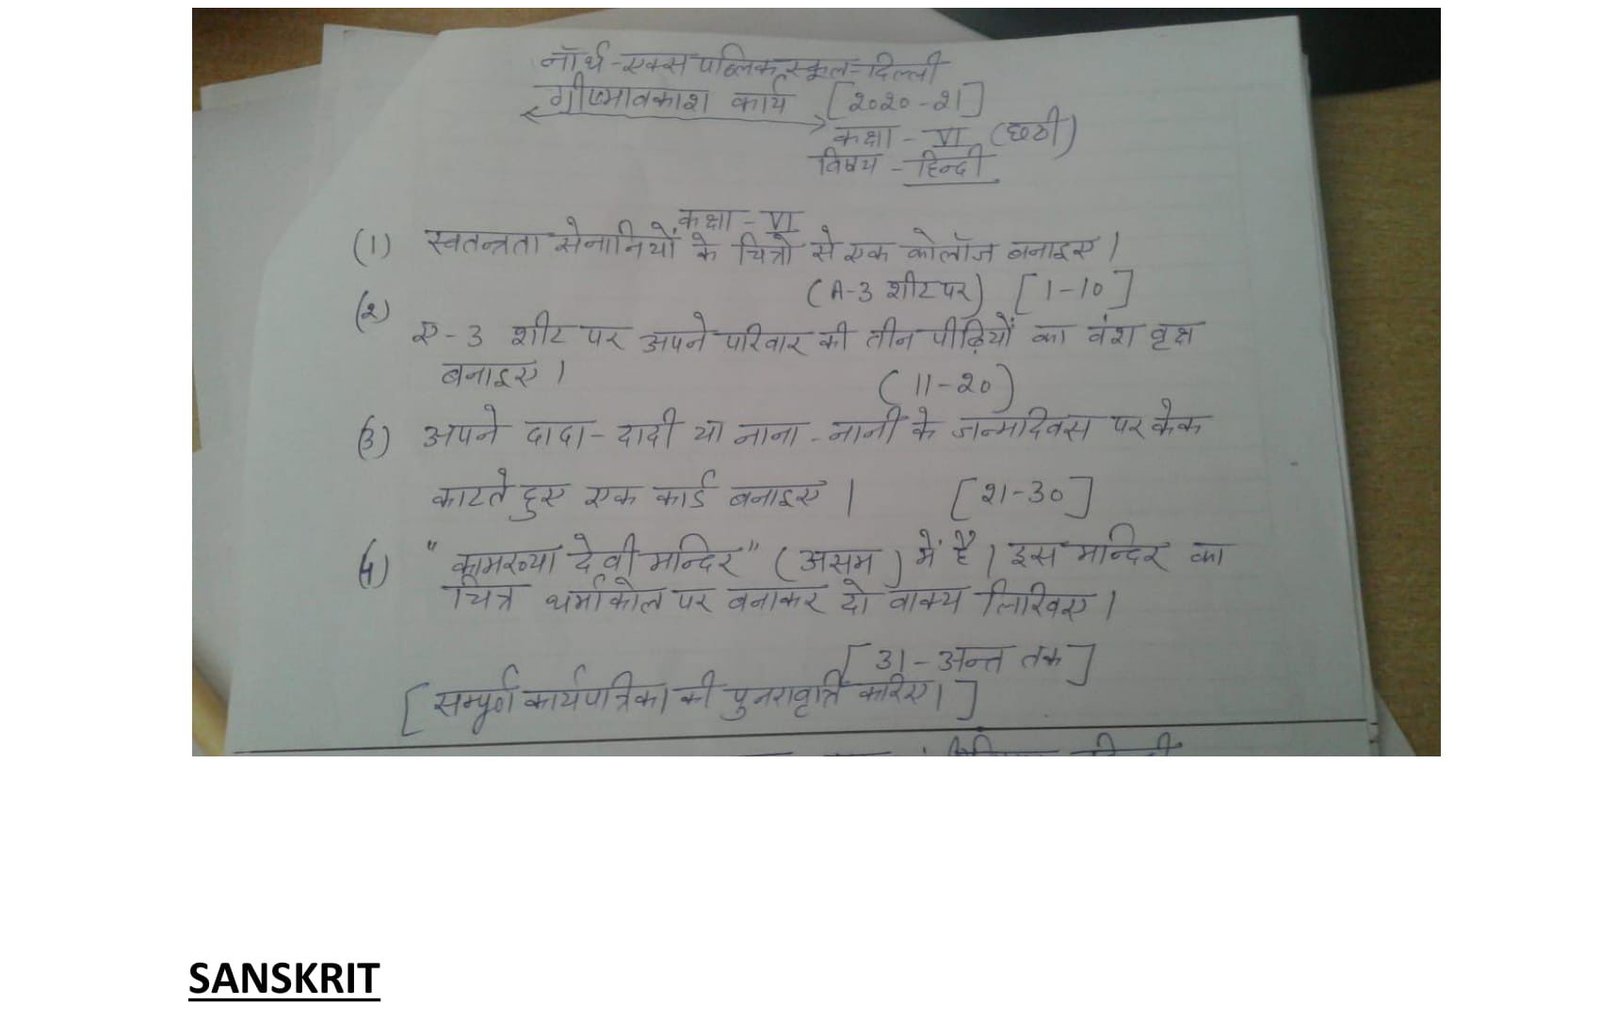 नॉर्थ-एक्स पब्लिक स्कूल-दिल्ली
ग्रीष्मावकाश कार्य [२०२०-२1]
कक्षा - VI (छठी)
विषय - हिन्दी
कक्षा - VI
(1) स्वतन्त्रता सेनानियों के चित्रो से एक कोलॉज बनाइए।
(A-3 शीट पर) [1-10]
(२)
ए-3 शीट पर अपने परिवार की तीन पीढ़ियों का वंश वृक्ष
बनाइए।
(11-२०)
(3) अपने दादा-दादी या नाना-नानी के जन्मदिवस पर केक
काटते हुए एक कार्ड बनाइए। [२1-30]
(4) "कामख्या देवी मन्दिर" (असम) में है। इस मन्दिर का
चित्र थर्माकोल पर बनाकर दो वाक्य लिखिए।
[31-अन्त तक]
[सम्पूर्ण कार्यपत्रिका की पुनरावृत्ति करिए।]
SANSKRIT